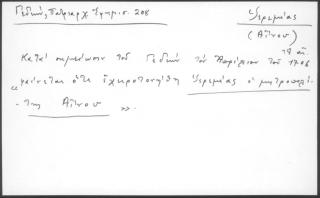 Γεδεών, Πατριαρχ. Εφημερίδ. 208
Ιερεμίας
(Αίνου)
Κατά σημείωσιν του Γεδεών τον Απρίλιον του 1706
18 αι.
"φαίνεται ότι εχειροτονήθη Ιερεμίας ο μητροπολί-
της Αίνου".